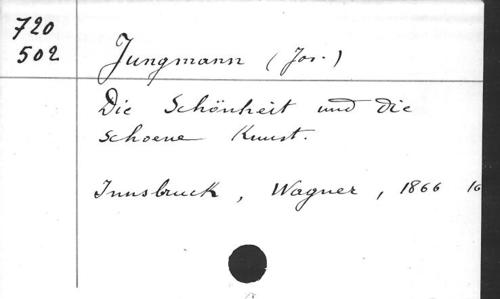 720
502
Jungmann (Jos.)
Die Schönheit und die
schoene Kunst.
Innsbruck, Wagner, 1866 16